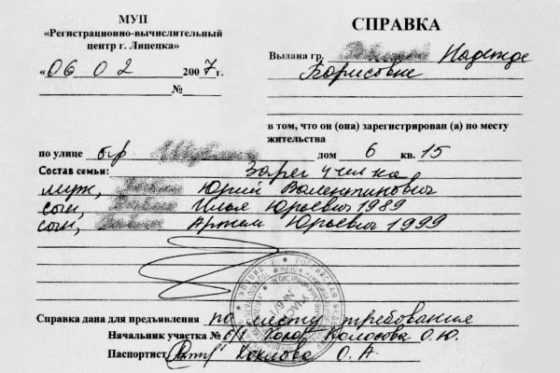 МУП
«Регистрационно-вычислительный
центр г. Липецка»
«06 02 2007г.
№
СПРАВКА
Выдана гр. Надежде
Борисовне
в том, что он (она) зарегистрирован (а) по месту
жительства
по улице б-р дом 6 кв. 15
Состав семьи:
муж, Юрий Валентинович
сын, Илья Юрьевич 1989
сын, Артем Юрьевич 1999
Справка дана для предъявления по месту требования
Начальник участка № О.Ю.
Паспортист О. А.